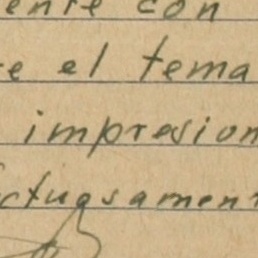 ente con
re el tema
impresion
ctuosament